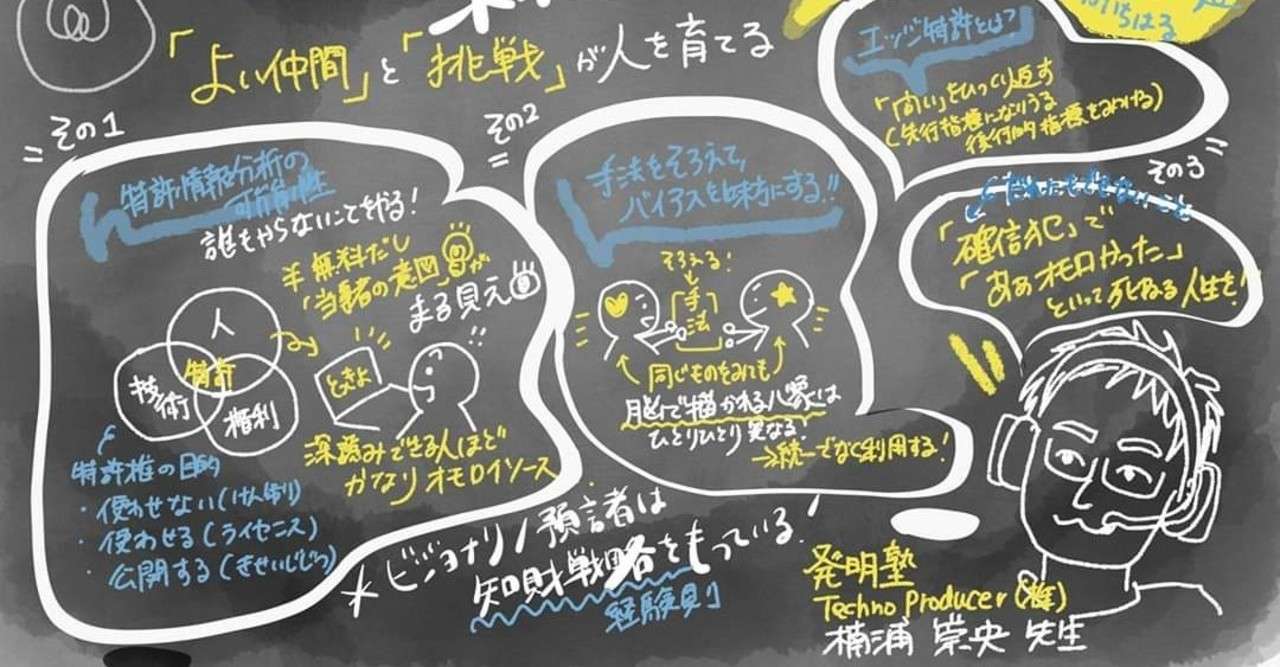 「よい仲間」と「挑戦」が人を育てる
その1
特許情報分析の
可能性
誰もやらないことをやる!
無料だし
「当事者の意図」が
まる見え
人
技術
特許
権利
ときょ
深読みできる人ほど
かなりオモロイソース
特許権の目的
・使わせない(けん制)
・使わせる(ライセンス)
・公開する(きせいじじつ)
その2
手法をそろえて、
バイアスを味方にする!!
そろえる!
手法
同じものをみても
脳で描かれる八景は
ひとりひとり異なる!
→統一でなく利用する!
ビジョナリ/預言者は
知財戦略をもっている!
経験則
エッジ特許とは?
「問い」をひっくり返す
(先行指標になりうる
後行的指標をみつける)
その3
だれにもできないこと
「確信犯」で
「ああオモロかった」
といって死ねる人生を!
発明塾
Techno Producer(株)
楠浦 崇央 先生